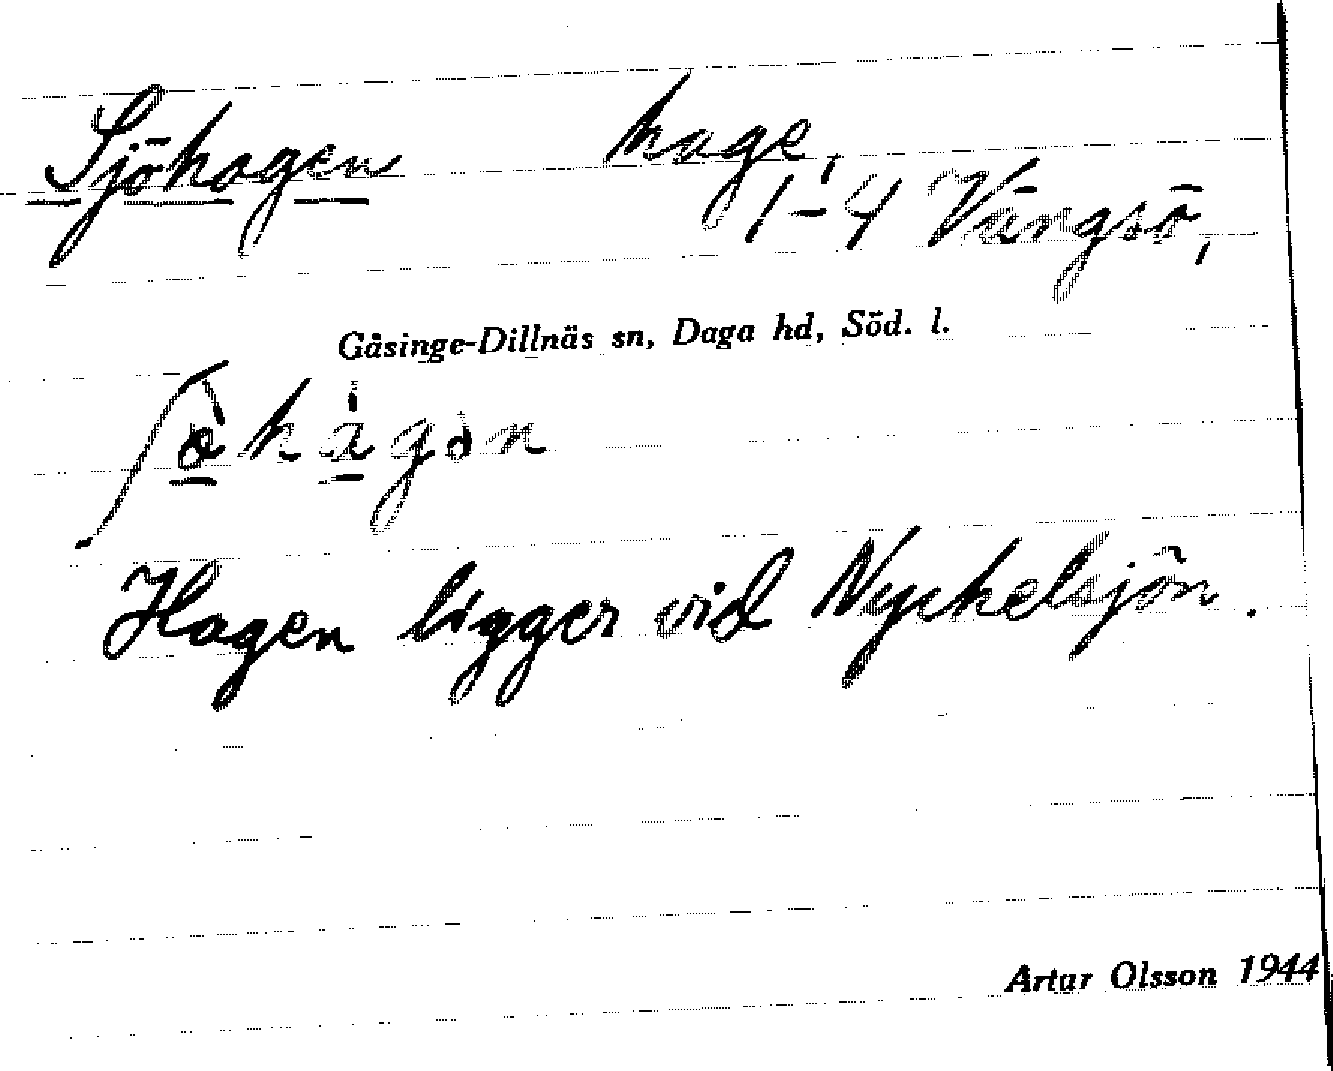 Sjöhagen hage,
1-4 Vängsö,
Gåsinge-Dillnäs sn, Daga hd, Söd. l.
Hagen ligger vid Nyckelsjön.
Artur Olsson 1944